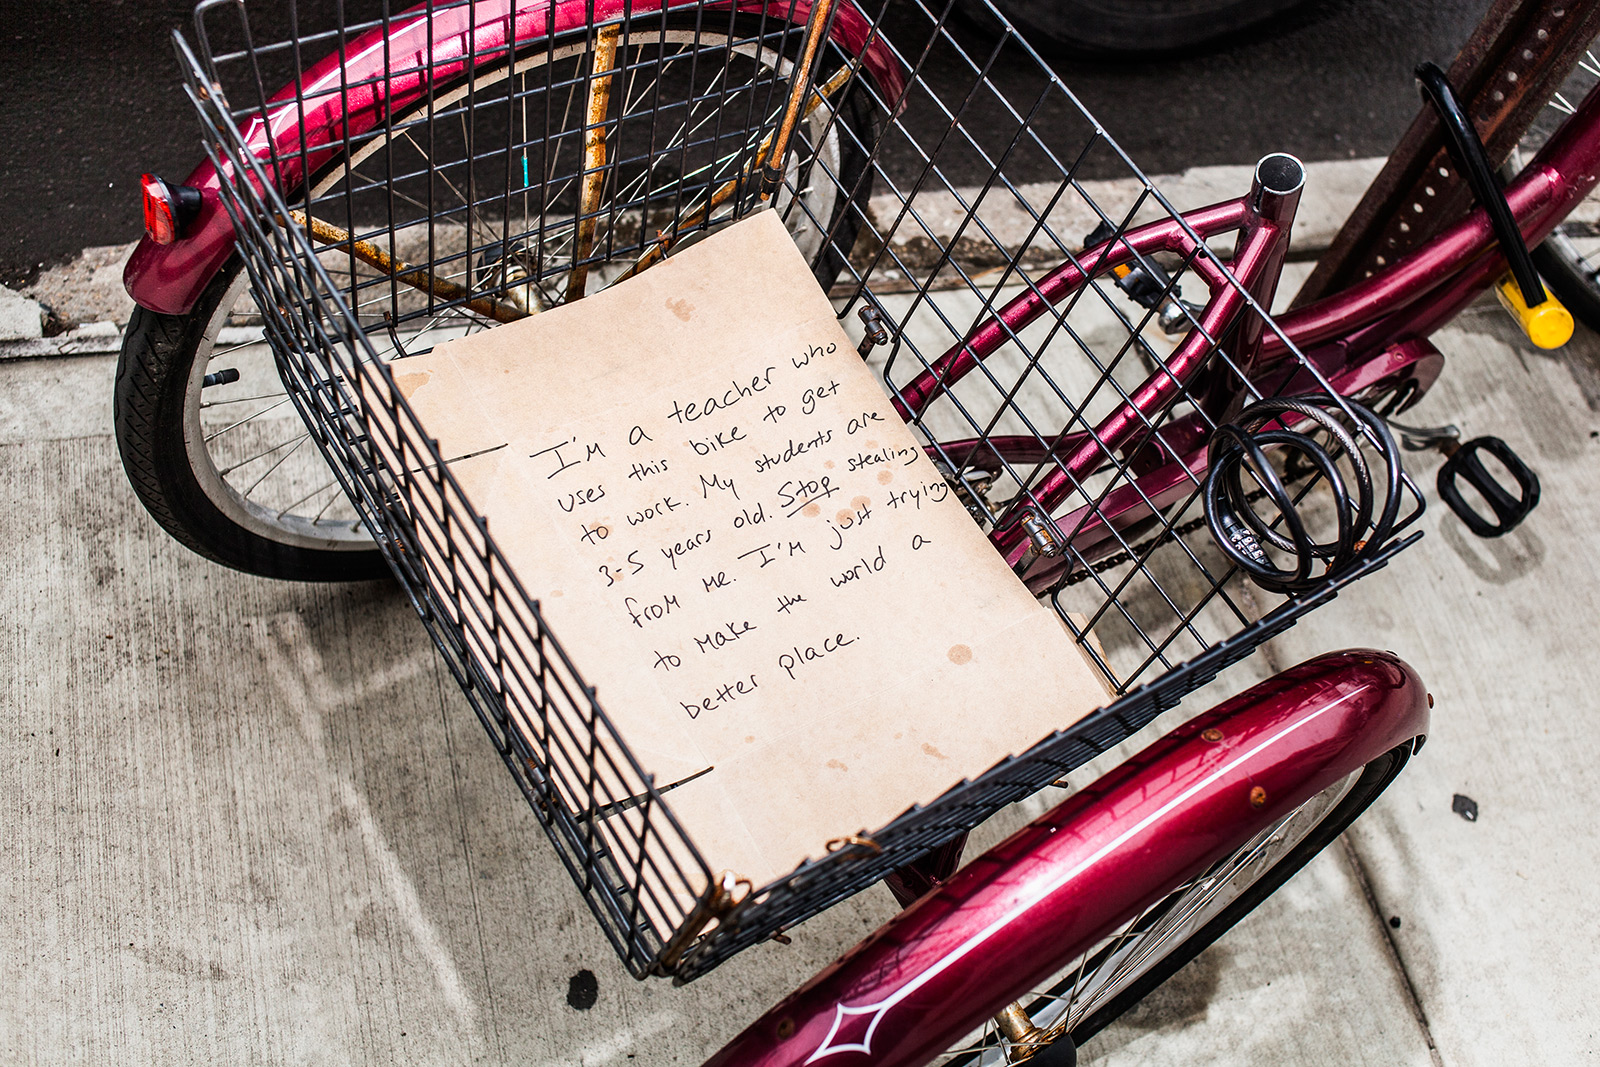 I'm a teacher who
uses this bike to get
to work. My students are
3-5 years old. Stop stealing
from me. I'm just trying
to make the world a
better place.